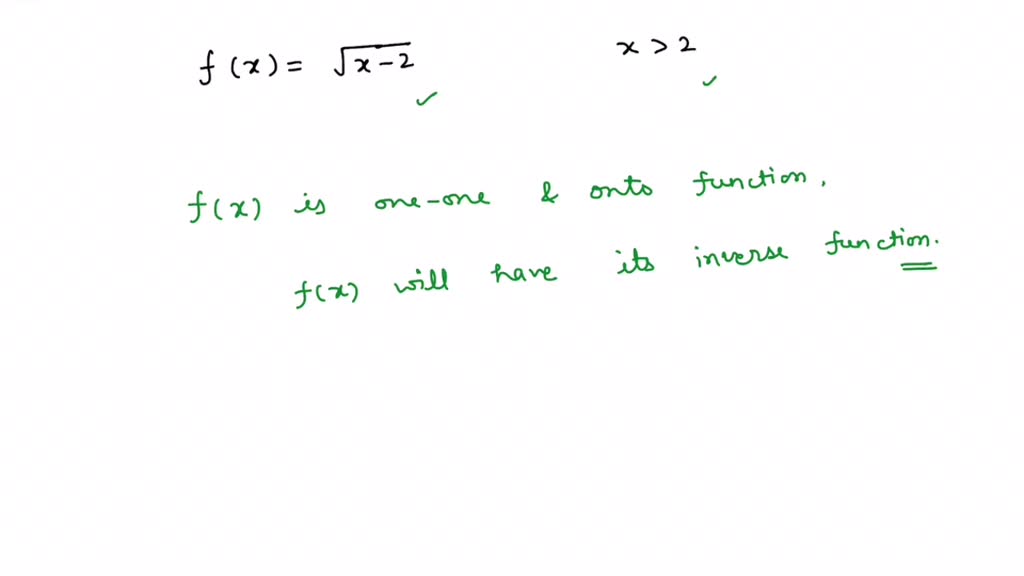 f(x) = √x-2 x > 2
f(x) is one-one & onto function.
f(x) will have its inverse function.